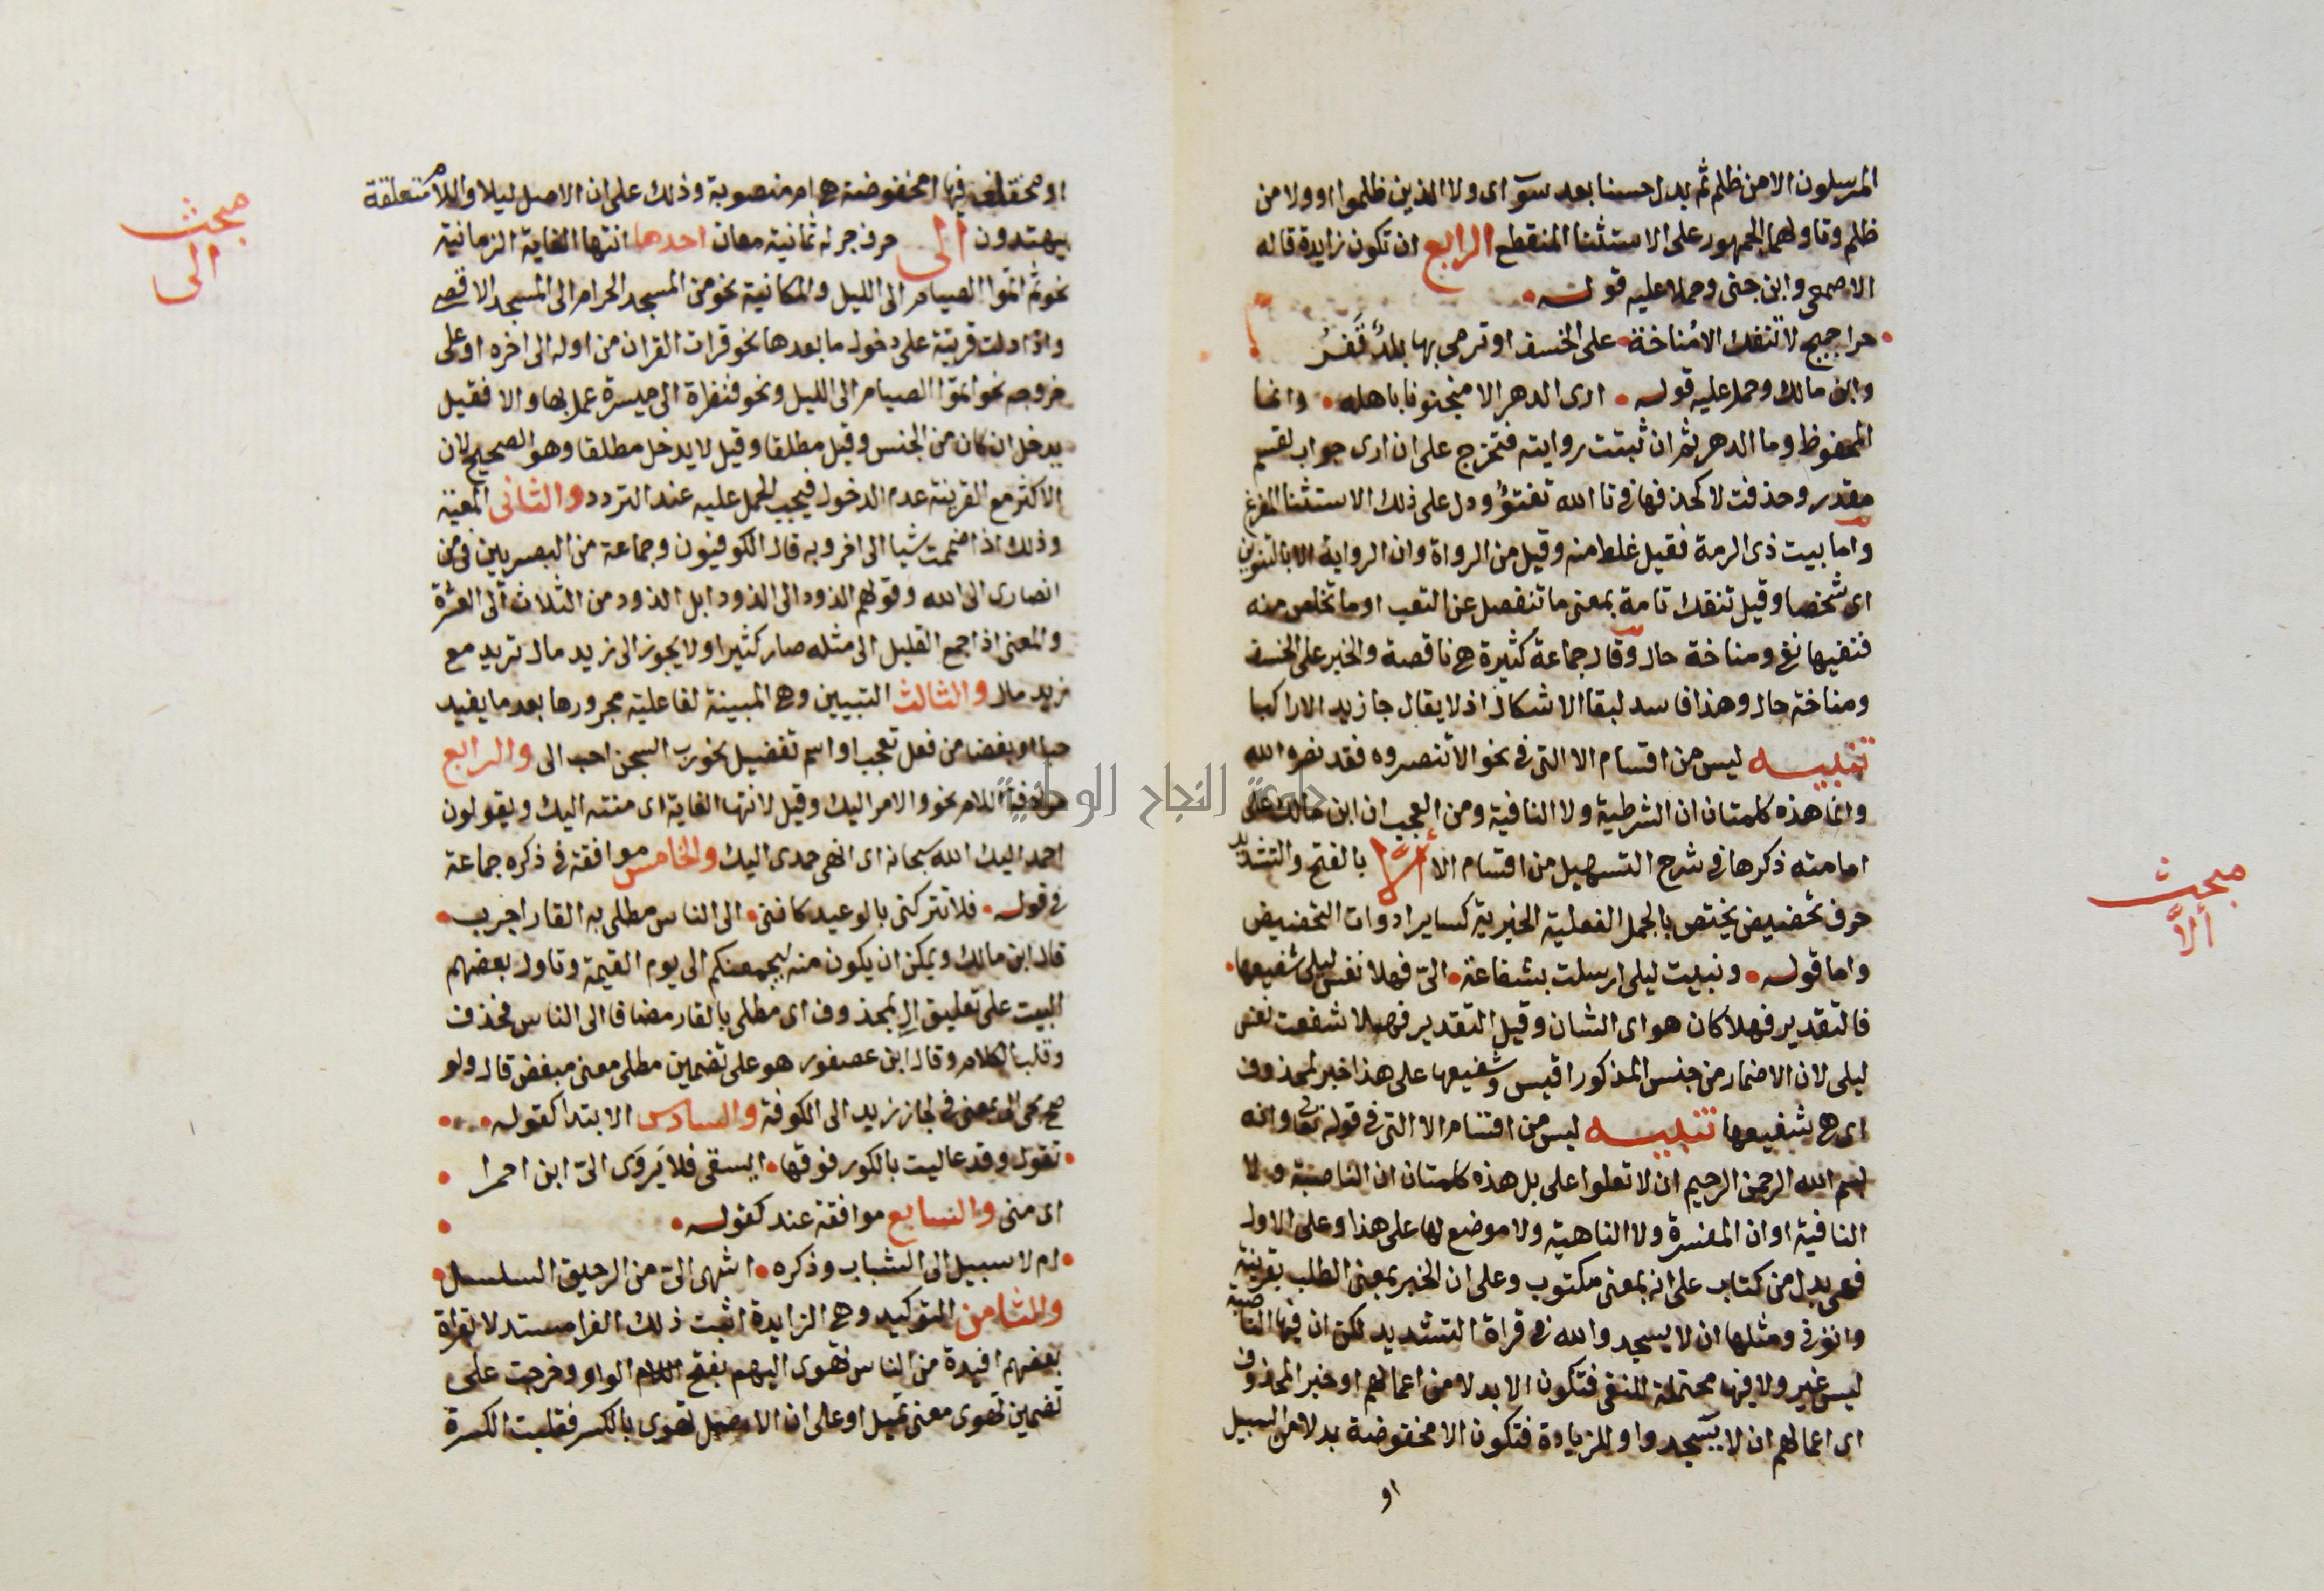 المرسلون الا من ظلم ثم بدل حسنا بعد سوآى ولا الذين ظلموا او ولا من
ظلم وتاولهما الجمهور على الاستثنا المنقطع الرابع ان تكون زايدة قاله
الاصمعى وابن جنى وحملا عليه قوله
حراجيج لا تنفك الا مُناخة على الخسف او ترمى بها بلدً قَفرُ
وابن مالك وحمل عليه قوله ارى الدهر الا منجنونا باهله وانما
المحفوظ وما الدهر ثم ان ثبتت روايته فتخرج على ان ارى جواب لقسم
مقدر وحذفت لا كحذفها فى تا الله تفتؤ ودل على ذلك الاستثنا المفرغ
واما بيت ذى الرمة فقيل غلط منه وقيل من الرواة وان الرواية الا بالتنوين
اى شخصا وقيل تنفك تامة بمعنى ما تنفصل عن التعب او ما تخلص منه
فنفيها نفى ومناخة حال وقال جماعة كثيرة هى ناقصة والخبر على الخسف
ومناخة حال وهذا فاسد لبقا الاشكال اذ لا يقال جا زيد الا راكبا
تنبيه ليس من اقسام الا التى فى نحو الا تنصروه فقد نصره الله
وانما هذه كلمتان ان الشرطية ولا النافية ومن العجب ان ابن مالك على
امامته ذكرها فى شرح التسهيل من اقسام الا ألاّ بالفتح والتشديد
حرف تحضيض يختص بالجمل الفعلية الخبرية كساير ادوات التحضيض
واما قوله ونبيت ليلى ارسلت بشفاعة الىّ فهلا نفس ليلى شفيعها
فالتقدير فهلا كان هو اى الشان وقيل التقدير فهلا شفعت نفس
ليلى لان الاضمار من جنس المذكور اقيس وشفيعها على هذا خبر لمحذوف
اى هى شفيعها تنبيه ليس من اقسام الا التى فى قوله تعالى وانه
بسم الله الرحمن الرحيم ان لا تعلوا على بل هذه كلمتان ان الناصبة ولا
النافية او ان المفسرة ولا الناهية ولا موضع لها على هذا وعلى الاول
فهى بدل من كتاب على انه بمعنى مكتوب وعلى ان الخبر بمعنى الطلب بقرينة
وائتونى ومثلها ان لا يسجدوا لله فى قراة التشديد لكن ان فيها الناصبة
ليس غير ولا فيها محتملة للنفى فتكون الا بدلا من اعمالهم او خبر المحذوف
اى اعمالهم ان لا يسجدوا وللزيادة فتكون الا مخفوضة بدلا من السبيل
او
مبحث
ألاّ
او مختلف فيها امخفوضة هى ام منصوبة وذلك على ان الاصل ليلا واللام متعلقة
بيهتدون الى حرف جر له ثمانية معان احدها انتها الغاية الزمانية
نحو ثم اتموا الصيام الى الليل والمكانية نحو من المسجد الحرام الى المسجد الاقصى
واذا دلت قرينة على دخول ما بعدها نحو قرات القران من اوله الى اخره او على
خروجه نحو اتموا الصيام الى الليل ونحو فنظرة الى ميسرة عمل بها والا فقيل
يدخل ان كان من الجنس وقيل مطلقا وقيل لا يدخل مطلقا وهو الصحيح لان
الاكثر مع القرينة عدم الدخول فيجب الحمل عليه عند التردد والثانى المعية
وذلك اذا ضممت شيا الى اخر وبه قال الكوفيون وجماعة من البصريين فى من
انصارى الى الله وقولهم الذود الى الذود ابل الذود من الثلاث الى العشرة
والمعنى اذا جمع القليل الى مثله صار كثيرا ولا يجوز الى زيد مال تريد مع
زيد مال والثالث التبيين وهى المبينة لفاعلية مجرورها بعد ما يفيد
حبا او بغضا من فعل تعجب او اسم تفضيل نحو رب السجن احب الى والرابع
مرادفة اللام نحو والامر اليك وقيل لانتها الغاية اى منته اليك ويقولون
احمد اليك الله سبحانه اى انهى حمدى اليك والخامس موافقة فى ذكره جماعة
فى قوله فلا تتركنى بالوعيد كاننى الى الناس مطلى به القار اجرب
قال ابن مالك ويمكن ان يكون منه ليجمعنكم الى يوم القيمة وتاول بعضهم
البيت على تعليق الى بمحذوف اى مطلى بالقار مضافا الى الناس فحذف
وقلب الكلام وقال ابن عصفور هو على تضمين مطلى معنى مبغض قال ولو
صح مجى الى بمعنى فى لجاز زيد الى الكوفة والسادس الابتدا كقوله
تقول وقد عاليت بالكور فوقها ايسقى فلا يَروَى الىّ ابن احمرا
اى منى والسابع موافقة عند كقوله
ام لا سبيل الى الشباب وذكره اشهى الىّ من الرحيق السلسل
والثامن التوكيد وهى الزايدة اثبت ذلك الفرا مستدلا بقراة
بعضهم افيدة من الناس تهوى اليهم بفتح الواو وخرجت على
تضمين تهوى معنى تميل او على ان الاصل تهوى بالكسر فقلبت الكسرة
مبحث
الى
جامعة النجاح الوطنية